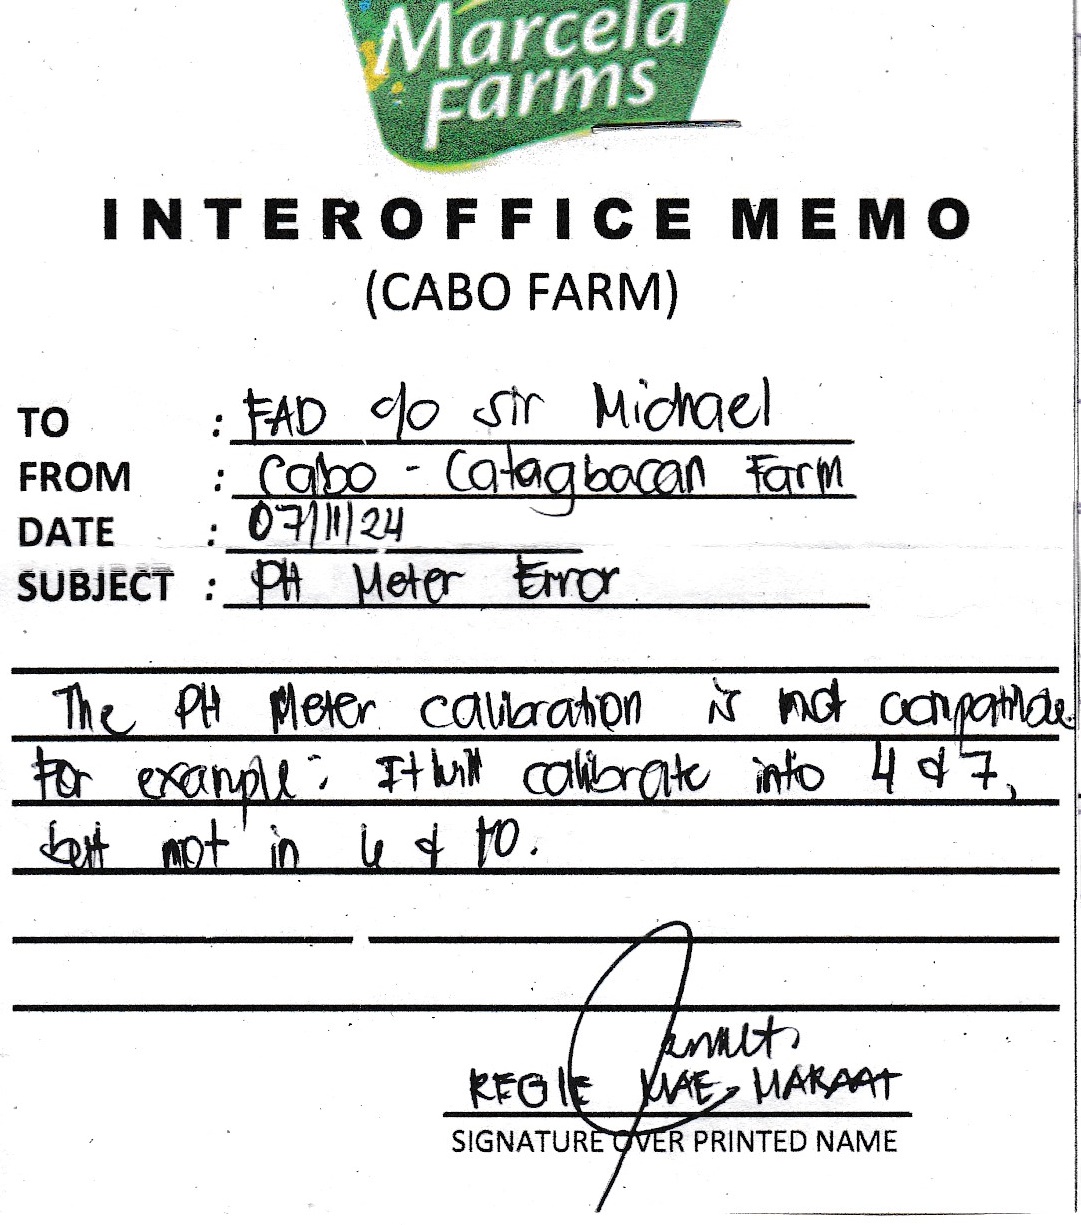 Marcela
Farms
INTEROFFICE MEMO
(CABO FARM)
TO : FAD c/o Sir Michael
FROM : Cabo - Catagbacan Farm
DATE : 07/11/24
SUBJECT : PH Meter Error
The PH Meter calibration is not compatible
For example: It will calibrate into 4 & 7,
but not in 4 & 10.
REGIE MAE MARAAT
SIGNATURE OVER PRINTED NAME